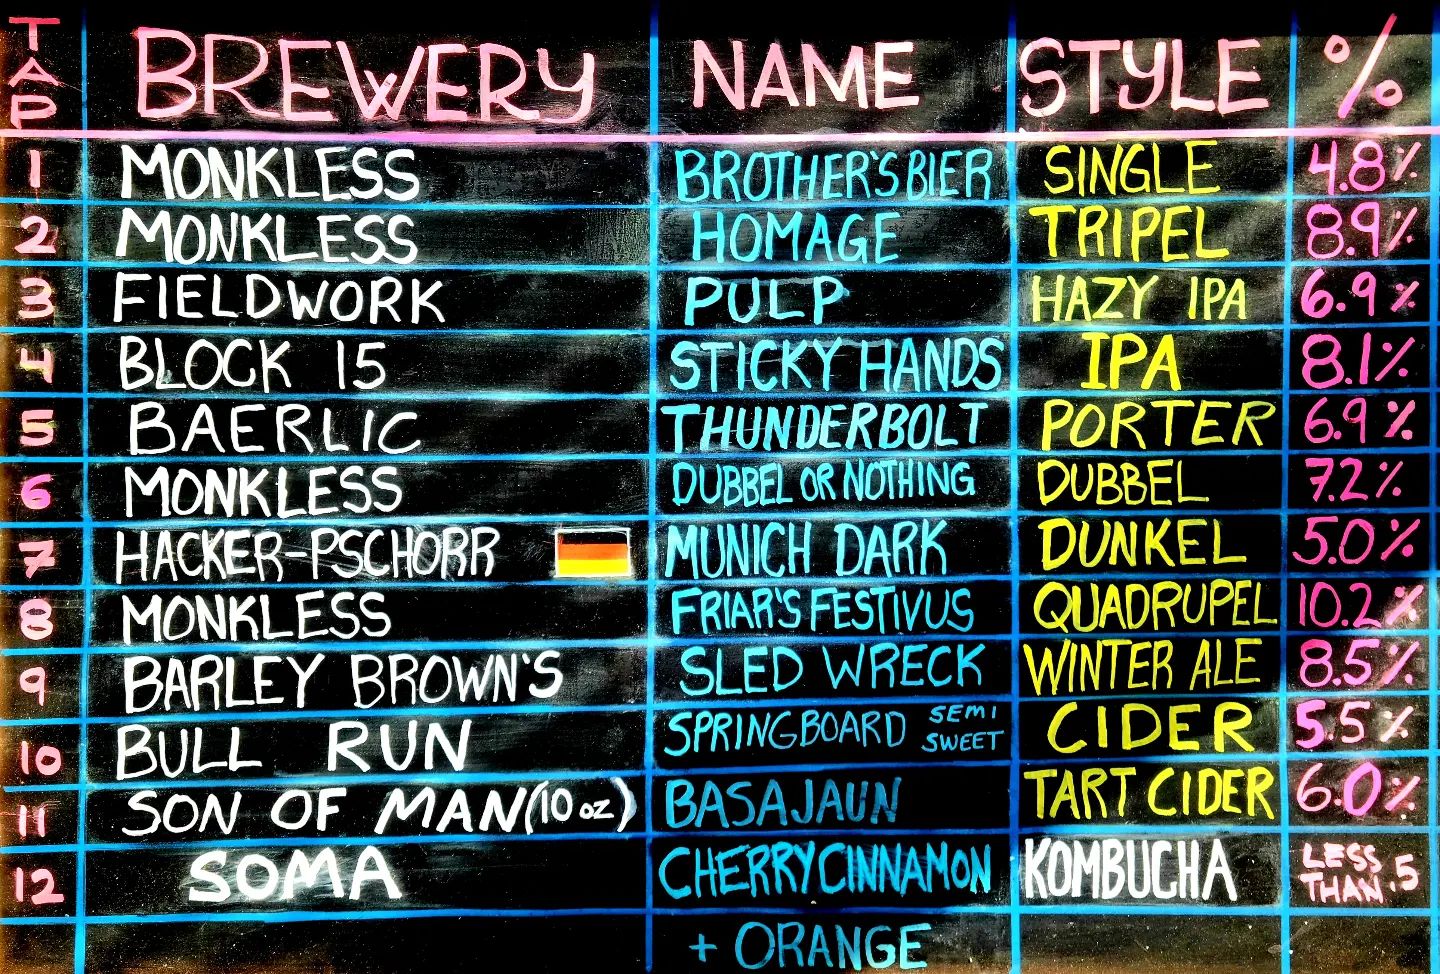 TAP BREWERY NAME STYLE %
1 MONKLESS BROTHER'S BIER SINGLE 4.8%
2 MONKLESS HOMAGE TRIPEL 8.9%
3 FIELDWORK PULP HAZY IPA 6.9%
4 BLOCK 15 STICKY HANDS IPA 8.1%
5 BAERLIC THUNDERBOLT PORTER 6.9%
6 MONKLESS DUBBEL OR NOTHING DUBBEL 7.2%
7 HACKER-PSCHORR MUNICH DARK DUNKEL 5.0%
8 MONKLESS FRIAR'S FESTIVUS QUADRUPEL 10.2%
9 BARLEY BROWN'S SLED WRECK WINTER ALE 8.5%
10 BULL RUN SPRINGBOARD SEMI SWEET CIDER 5.5%
11 SON OF MAN (10 oz) BASAJAUN TART CIDER 6.0%
12 SOMA CHERRY CINNAMON KOMBUCHA LESS THAN .5
+ ORANGE